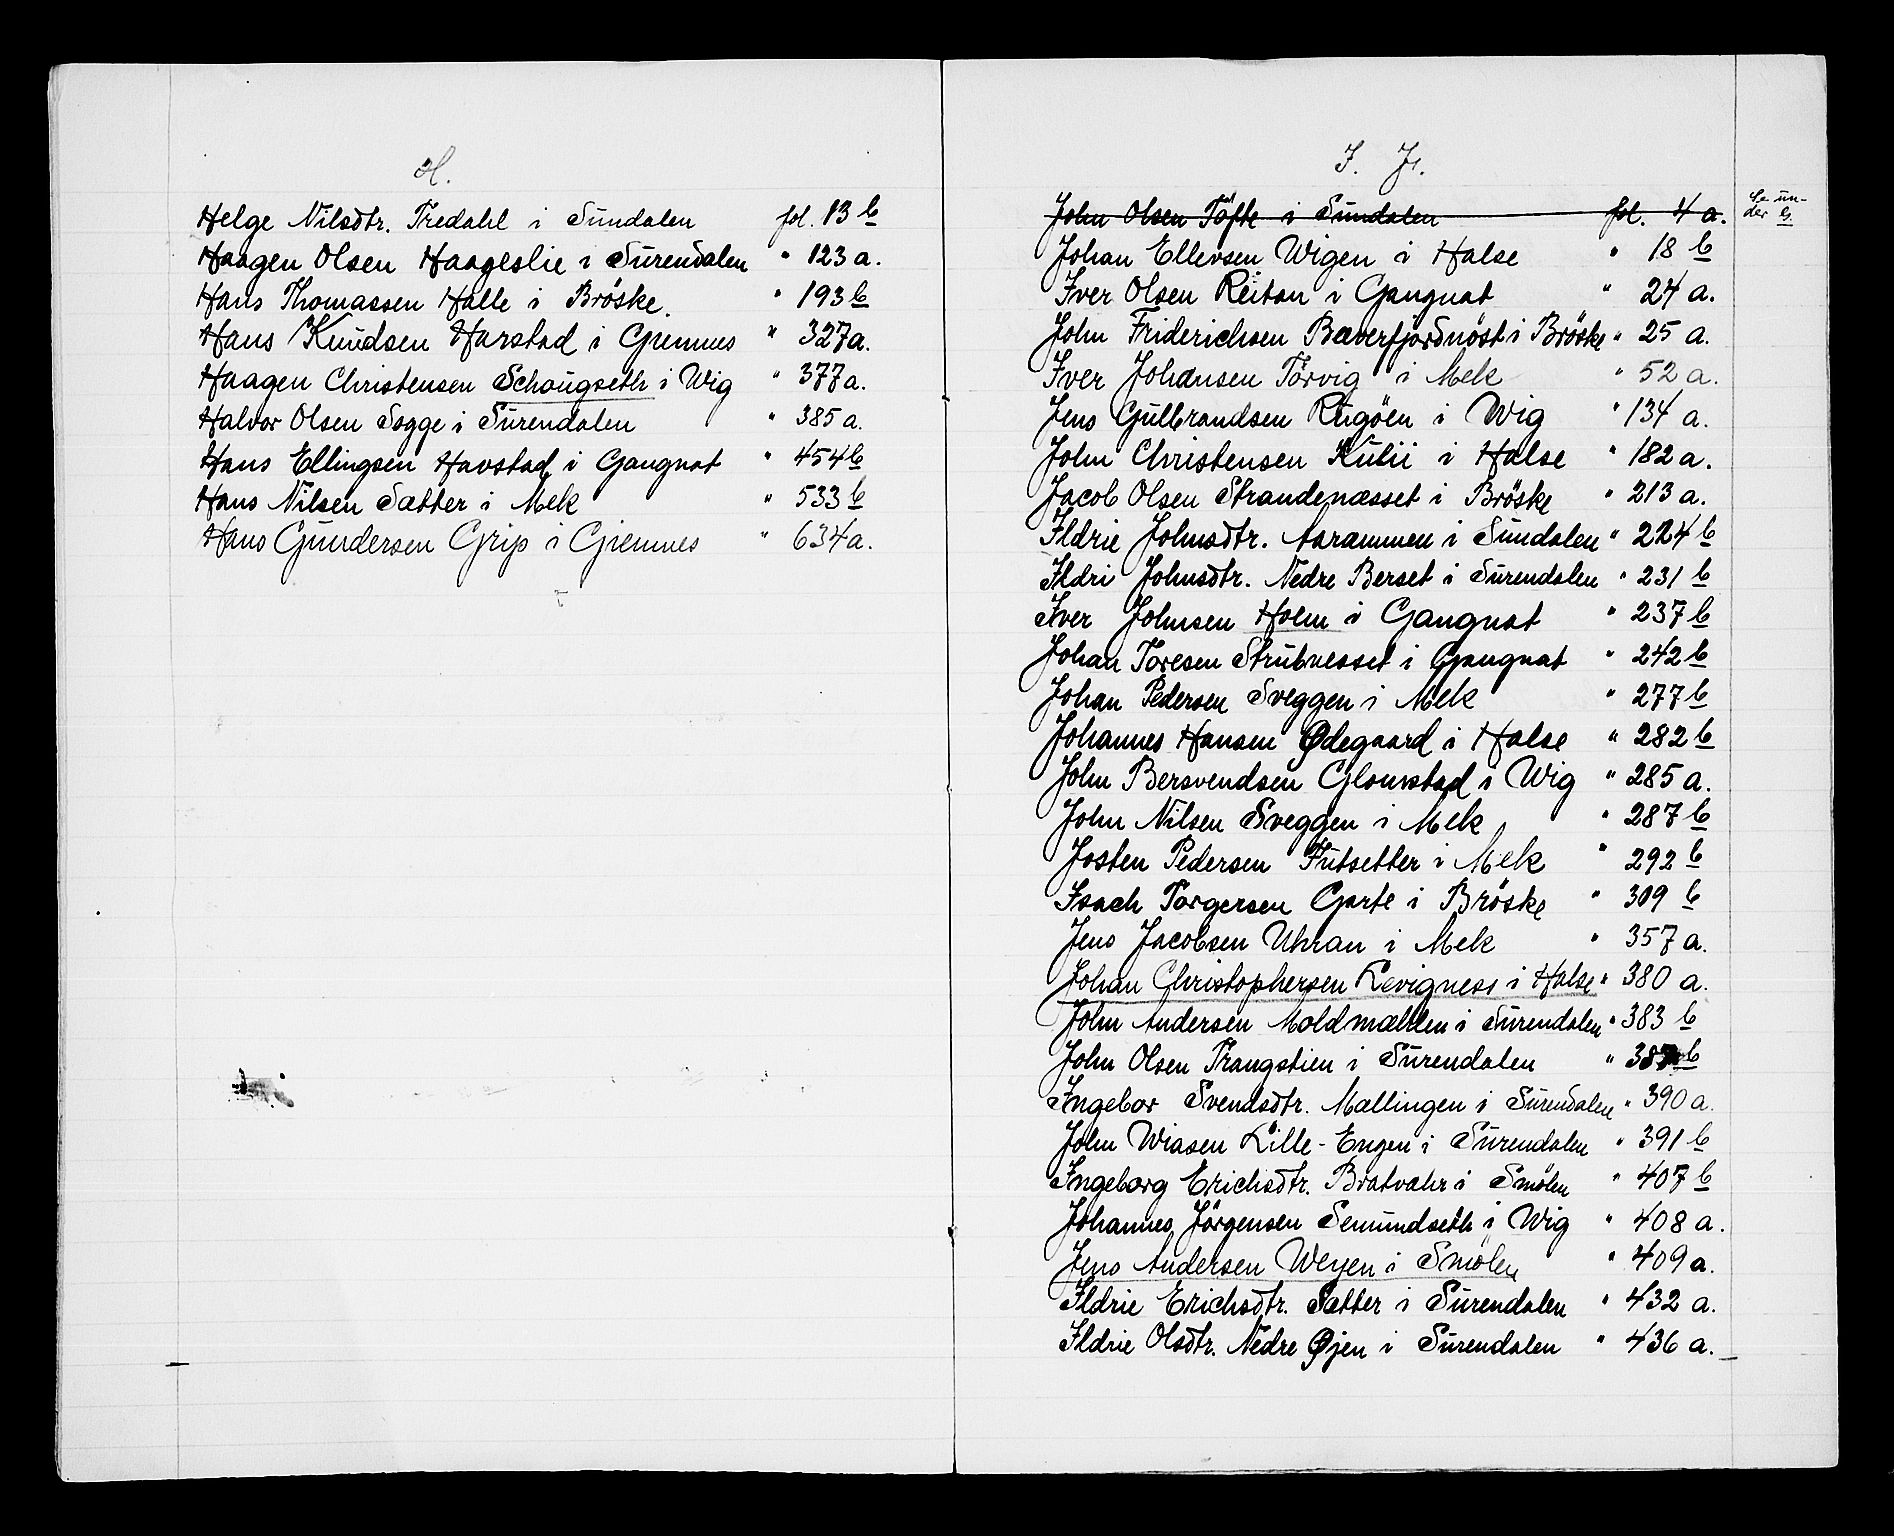 H.
Helge Nilsdtr. Tredahl i Sundalen fol. 13 b
Haagen Olsen Haageslie i Surendalen " 123 a.
Hans Thomassen Halle i Bröske. " 193 b
Hans Knudsen Harstad i Gremnes " 327 a.
Haagen Christensen Schougseth i Wig " 377 a.
Halvor Olsen Sogge i Surendalen " 385 a.
Hans Ellingsen Havstad i Gangnat " 454 b
Hans Nilsen Sætter i Mek " 533 b
Hans Gundersen Grip i Gremnes " 634 a.
I. J.
John Olsen Töfte i Sundalen fol. 4 a. Se un-
der G.
Johan Ellevsen Wigen i Halse " 18 b
Iver Olsen Reiten i Gangnat " 24 a.
John Friderichsen Bæverfjordnöst i Bröske " 25 a.
Iver Johansen Törvig i Mek " 52 a.
Jens Gulbrandsen Rugöen i Wig " 134 a.
John Christensen Kulii i Halse " 182 a.
Jacob Olsen Strandenæsset i Bröske " 213 a.
Ildrie Johnsdtr. Aarammen i Sundalen " 224 b
Ildri Johnsdtr. Nedre Berset i Surendalen " 231 b
Iver Johnsen Holm i Gangnat " 237 b
Johan Toresen Strubnesset i Gangnat " 242 b
Johan Pedersen Sveggen i Mek " 277 b
Johannes Hansen Ødegaard i Halse " 282 b
John Bersvendsen Glomstad i Wig " 285 a.
John Nilsen Sveggen i Mek " 287 b
Josten Pedersen Futsetter i Mek " 292 b
Isach Torgersen Garte i Bröske " 309 b
Jens Jacobsen Uhran i Mek " 357 a.
Johan Christophersen Levigness i Halse " 380 a.
John Andersen Moldmælen i Surendalen " 383 b
John Olsen Trangstien i Surendalen " 387 b
Ingebor Svendsdtr. Mællingen i Surendalen " 390 a.
John Wiasen Lille-Engen i Surendalen " 391 b
Ingeborg Erichsdtr. Bratvahr i Smölen " 407 b
Johannes Jörgensen Semundseth i Wig " 408 a.
Jens Andersen Weyen i Smölen " 409 a.
Ildrie Erichsdtr. Sætter i Surendalen " 432 a.
Ildrie Olsdtr. Nedre Øjen i Surendalen " 436 a.